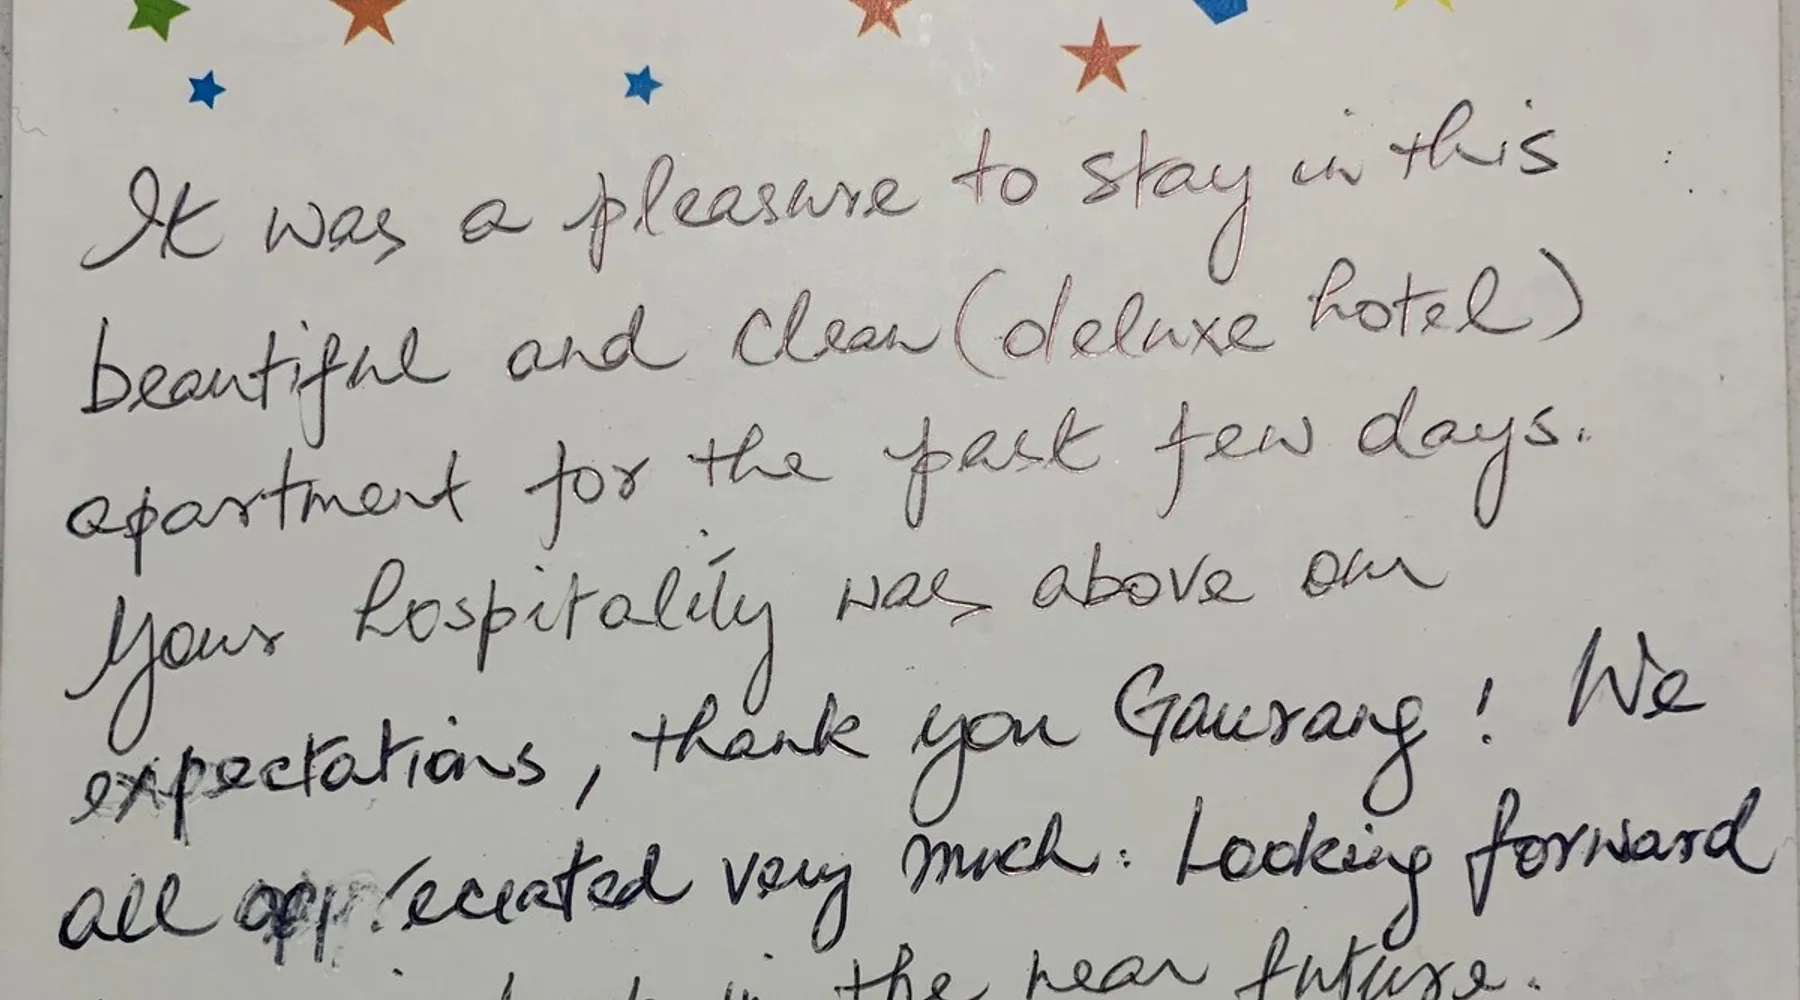 It was a pleasure to stay in this
beautiful and clean (deluxe hotel)
apartment for the past few days.
Your hospitality was above our
expectations, thank you Gaurang! We
all appreciated very much. Looking forward
in the near future.